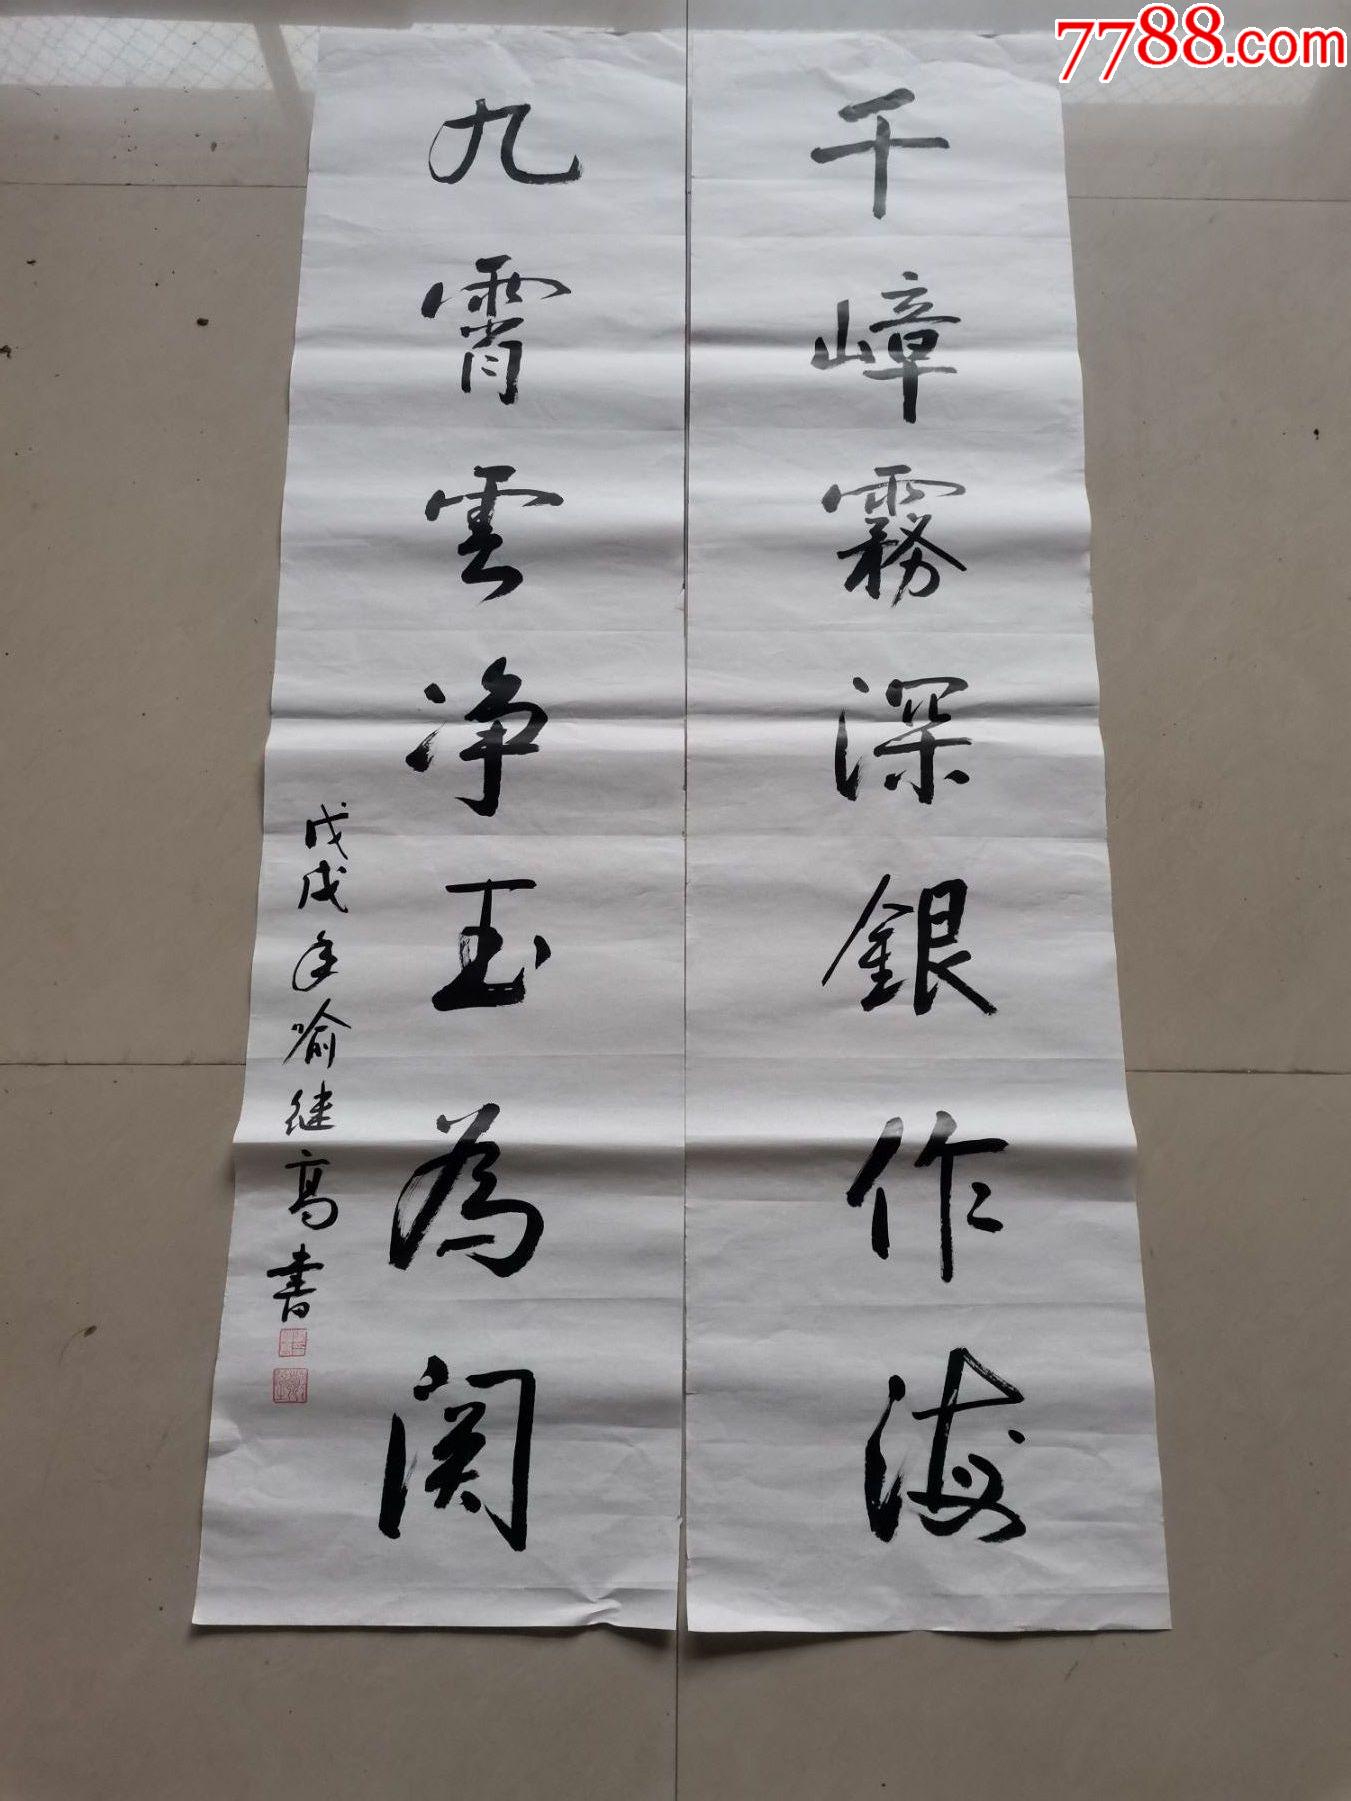 7788.com
千嶂霧深銀作海
九霄雲净玉為関
戊戌年喻继高書